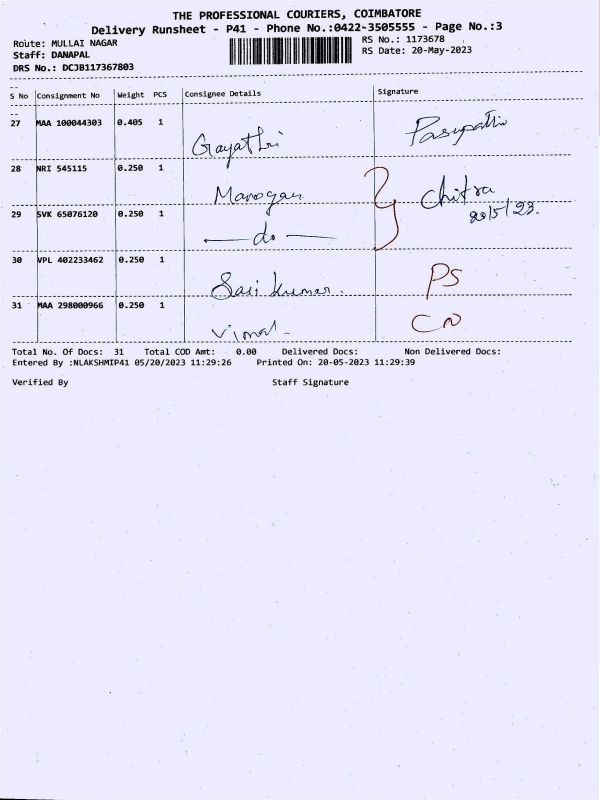 THE PROFESSIONAL COURIERS, COIMBATORE
Delivery Runsheet - P41 - Phone No.:0422-3505555 - Page No.:3
Route: MULLAI NAGAR RS No.: 1173678
Staff: DANAPAL RS Date: 20-May-2023
DRS No.: DCJB117367803
S No Consignment No Weight PCS Consignee Details Signature
27 MAA 100044303 0.405 1 Gayathri Pasupathi
28 NRI 545115 0.250 1 Manogari Chitra
29 SVK 65076120 0.250 1 do 20/5/23.
30 VPL 402233462 0.250 1 Sasi kumar. PS
31 MAA 298000966 0.250 1 Vimal CN
Total No. Of Docs: 31 Total COD Amt: 0.00 Delivered Docs: Non Delivered Docs:
Entered By :NLAKSHMIP41 05/20/2023 11:29:26 Printed On: 20-05-2023 11:29:39
Verified By Staff Signature